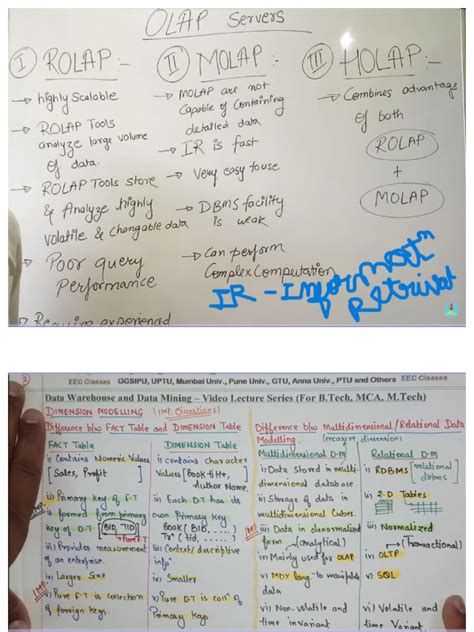 OLAP Servers
I ROLAP:-
→ highly Scalable
→ ROLAP Tools
analyze large volume
of data.
→ ROLAP Tools store
& Analyze highly
Volatile & Changable data
→ Poor query
Performance
→ Require experienced
II MOLAP:
→ MOLAP are not
Capable of Containing
detailed data
→ IR is fast
→ Very easy to use
→ DBMS facility
is weak
→ Can perform
Complex Computation
III HOLAP:-
→ Combines advantag
of both
ROLAP
+
MOLAP
IR - Informatn
Retrival
3
EEC Classes GGSIPU, UPTU, Mumbai Univ., Pune Univ., GTU, Anna Univ., PTU and Others EEC Classes
Data Warehouse and Data Mining – Video Lecture Series (For B.Tech, MCA, M.Tech)
DIMENSION MODELLING (IMP. Questions)
Difference b/w FACT Table and DIMENSION Table
FACT Table
i) Contains Numeric Values
[Sales, Profit]
ii) Primary key of F.T
is formed from primary
key of D.T [BID, TID]
iii) Provides measurement
of an enterprise.
iv) Larger Size
v) Pure F.T is collection
of foreign keys.
DIMENSION Table
i) Contains character
Values [Book-title,
Author Name.
ii) Each D.T has its
own Primary key
Book (BID, ....)
iii) Context/descriptive
info
iv) Smaller
v) Pure D.T is colln of
Primary keys.
Difference b/w Multidimensional/Relational Data
Modelling. (measure, dimension)
Multidimensional D.M
i) Data Stored in multi-
dimensional database
ii) Storage of data in
multidimensional Cubes.
iii) Data in denormalized
form (analytical)
iv) Mainly used for OLAP
v) MDX lang to manipulate
data
vi) Non-volatile and
time invariant
Relational D.M
i) RDBMS [relational
dbms]
ii) 2-D Tables
iii) Normalized
(Transactional)
iv) OLTP
v) SQL
vi) Volatile and
time Variant.